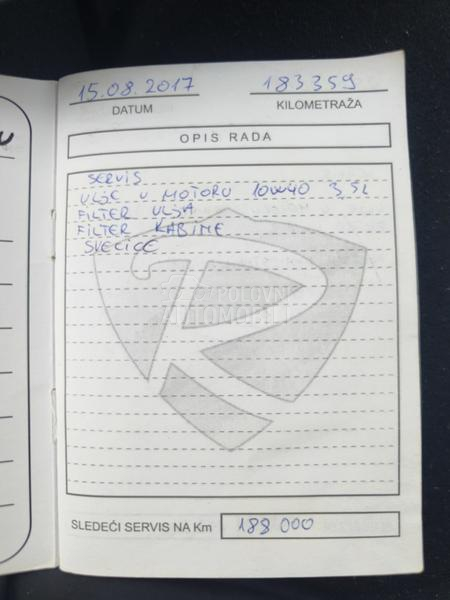 15.08.2017 183359
DATUM KILOMETRAŽA
OPIS RADA
SERVIS
ULJE U MOTORU 10W40 3,5L
FILTER ULJA
FILTER KABINE
SVEĆICE
POLOVNI
AUTOMOBILI
SLEDEĆI SERVIS NA Km 188 000